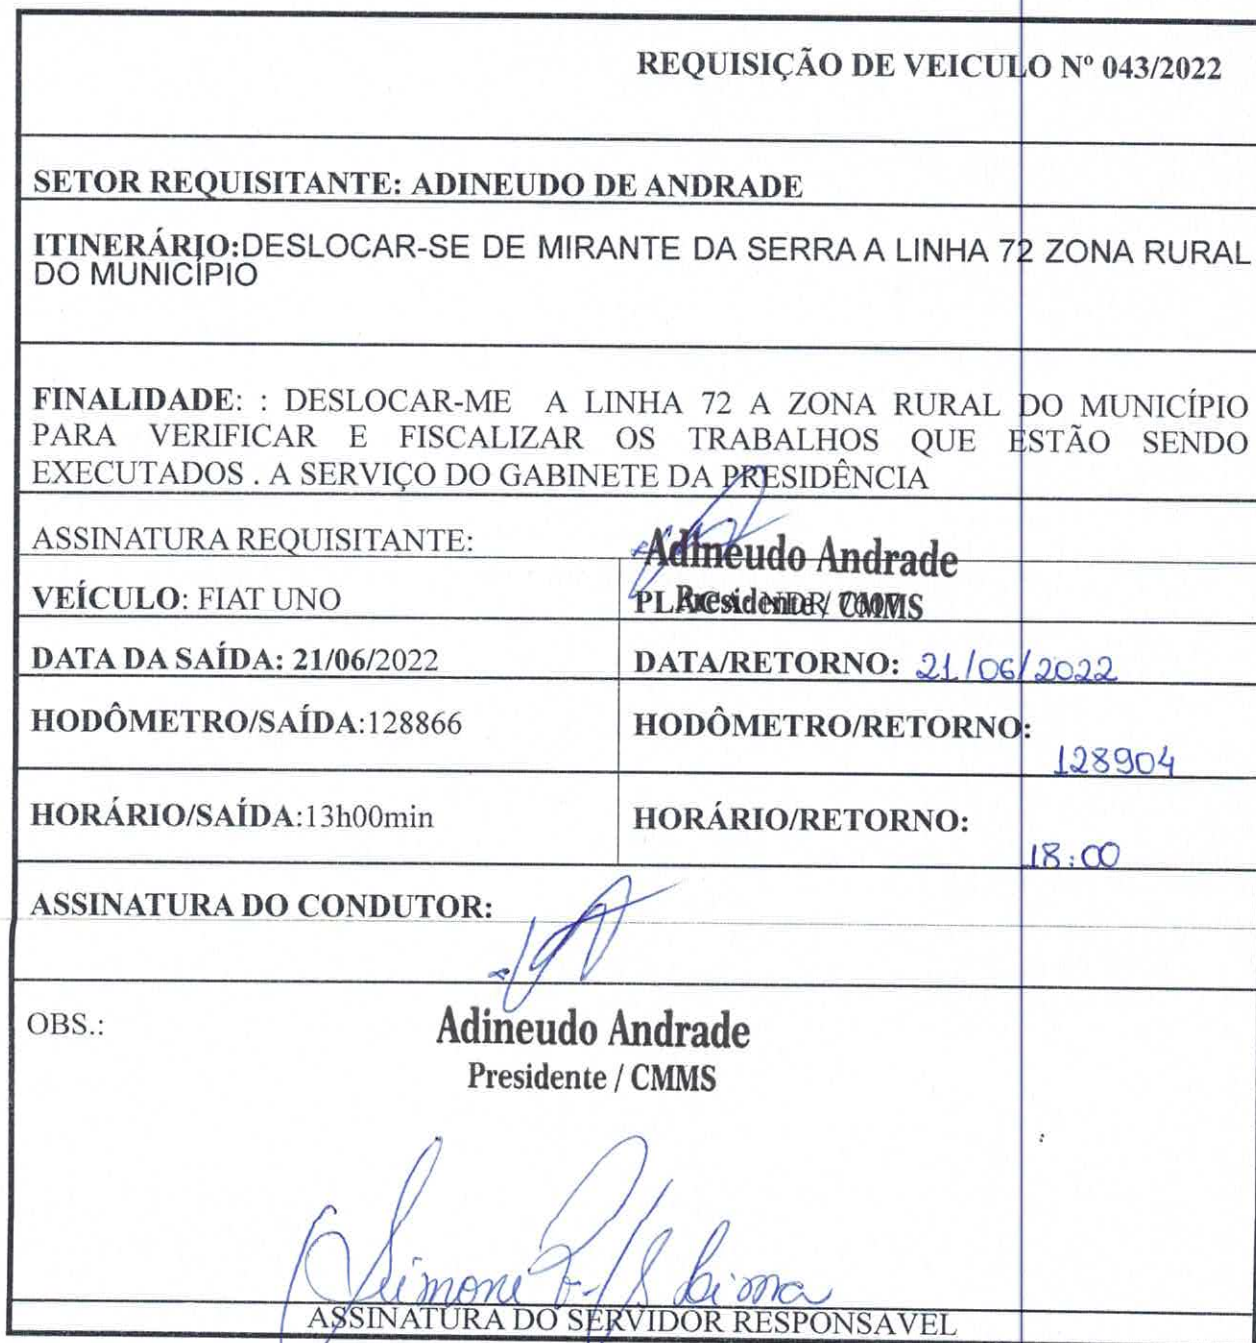 REQUISIÇÃO DE VEICULO Nº 043/2022
SETOR REQUISITANTE: ADINEUDO DE ANDRADE
ITINERÁRIO:DESLOCAR-SE DE MIRANTE DA SERRA A LINHA 72 ZONA RURAL
DO MUNICÍPIO
FINALIDADE: : DESLOCAR-ME A LINHA 72 A ZONA RURAL DO MUNICÍPIO
PARA VERIFICAR E FISCALIZAR OS TRABALHOS QUE ESTÃO SENDO
EXECUTADOS . A SERVIÇO DO GABINETE DA PRESIDÊNCIA
ASSINATURA REQUISITANTE:
Adineudo Andrade
Presidente / CMMS
VEÍCULO: FIAT UNO
DATA DA SAÍDA: 21/06/2022
DATA/RETORNO: 21/06/2022
HODÔMETRO/SAÍDA:128866
HODÔMETRO/RETORNO:
128904
HORÁRIO/SAÍDA:13h00min
HORÁRIO/RETORNO:
18:00
ASSINATURA DO CONDUTOR:
OBS.:
Adineudo Andrade
Presidente / CMMS
Simone
Lima
ASSINATURA DO SERVIDOR RESPONSAVEL